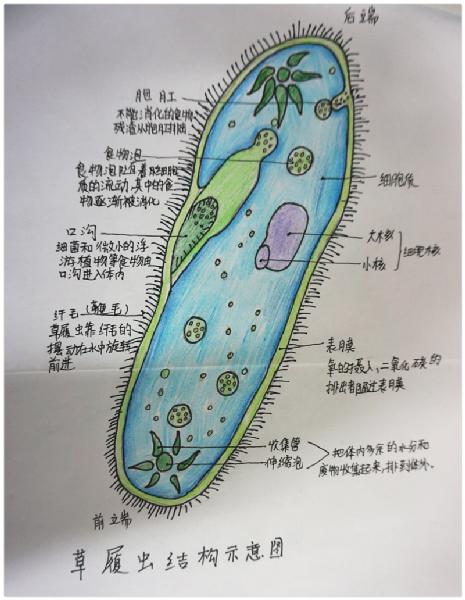 后端
胞肛
不能消化的食物
残渣从胞肛排出
食物泡
食物泡随着细胞
质的流动,其中的食
物逐渐被消化
细胞质
口沟
细菌和微小的浮
游植物等食物由
口沟进入体内
大核
细胞核
小核
纤毛(鞭毛)
草履虫靠纤毛的
摆动在水中旋转
前进
表膜
氧的摄入,二氧化碳的
排出都通过表膜
收集管
伸缩泡
把体内多余的水分和
废物收集起来,排到体外。
前端
草履虫结构示意图